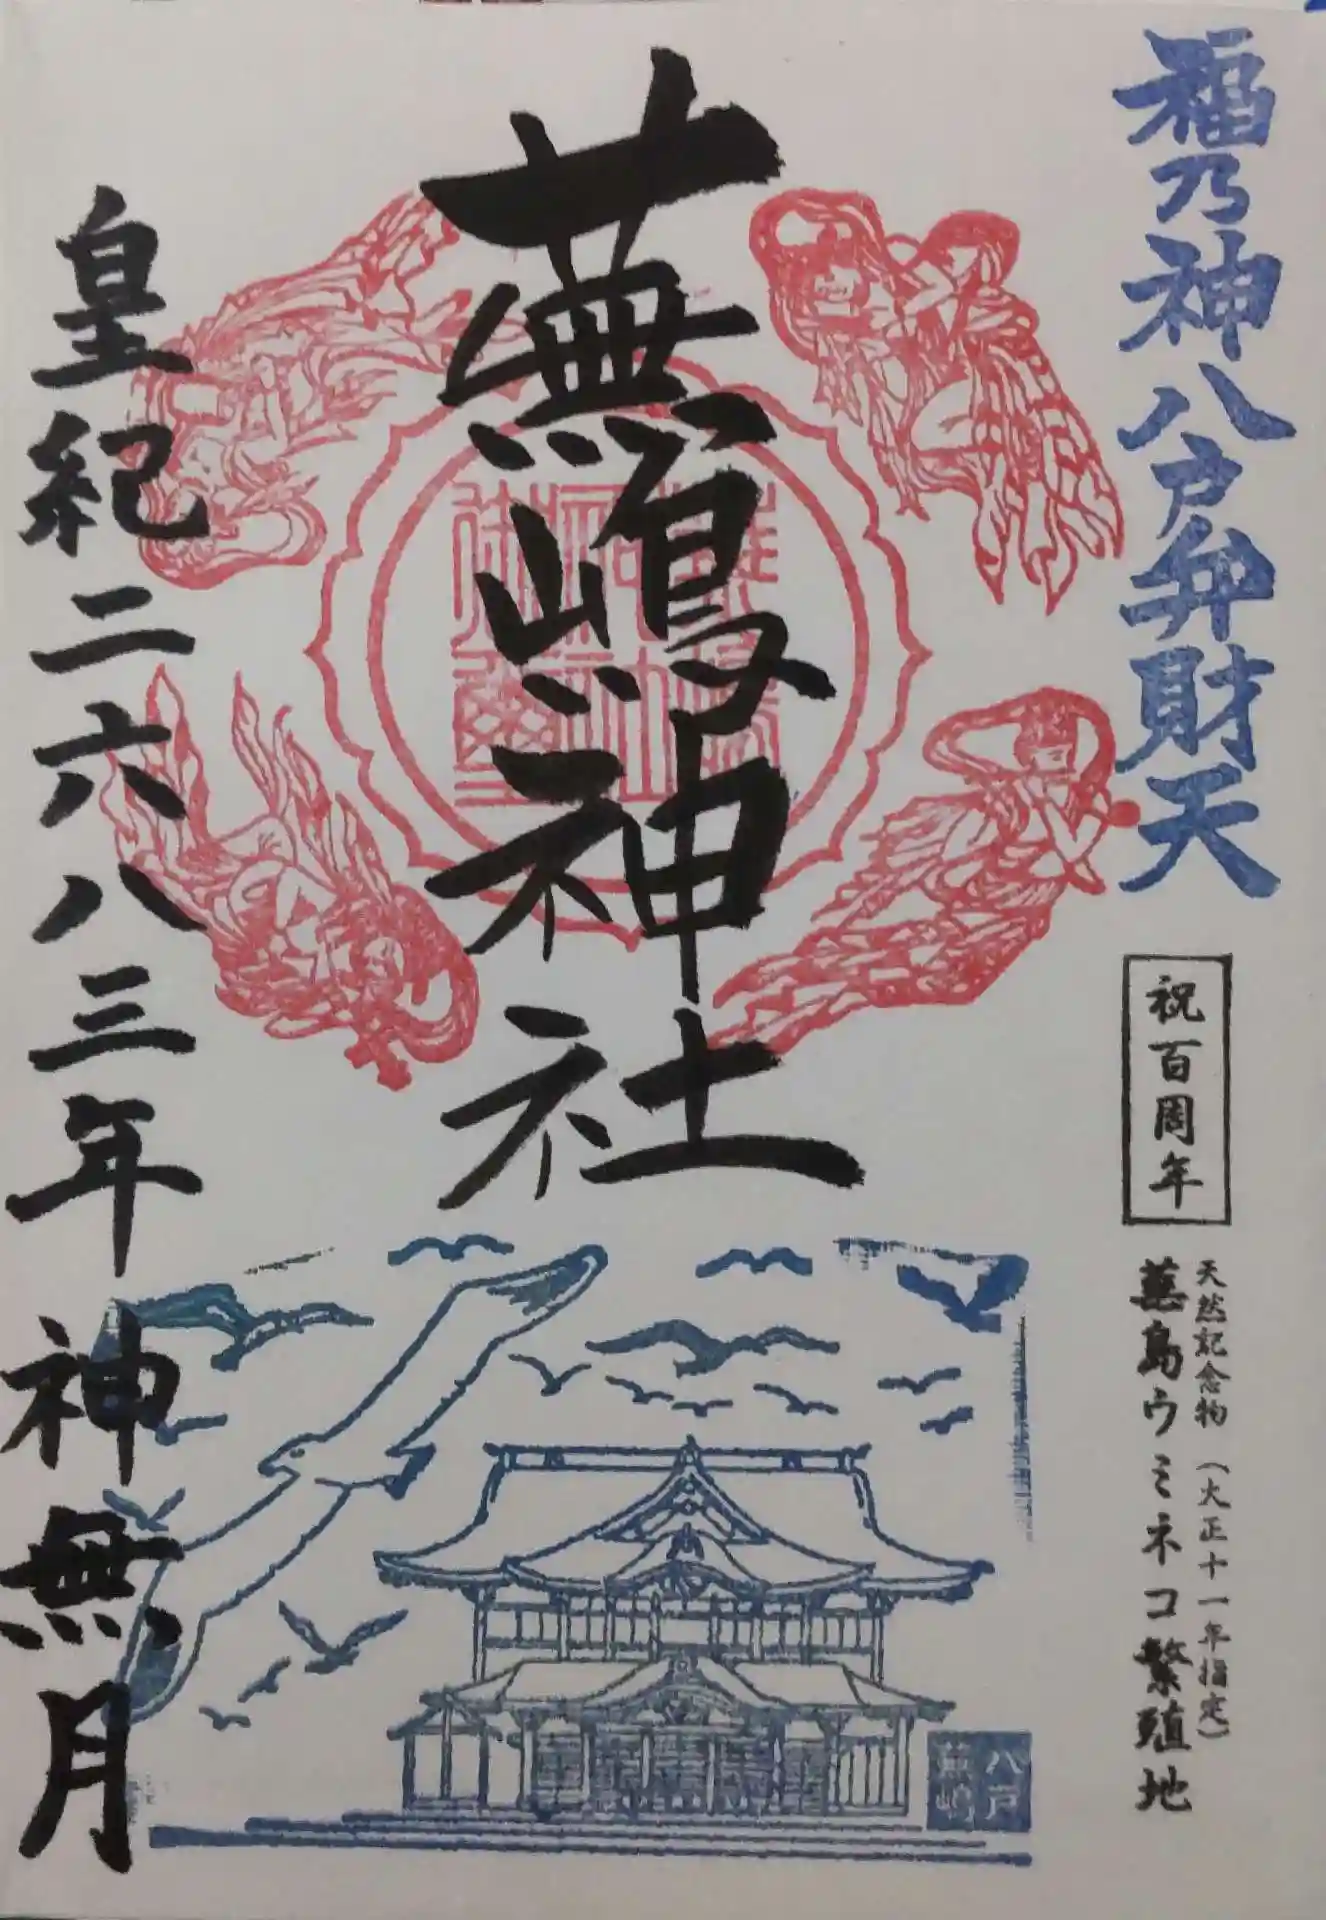 福乃神八戸弁財天
祝百周年
天然記念物（大正十一年指定）
蕪島ウミネコ繁殖地
蕪嶋神社
皇紀二六八三年 神無月
八戸
蕪嶋